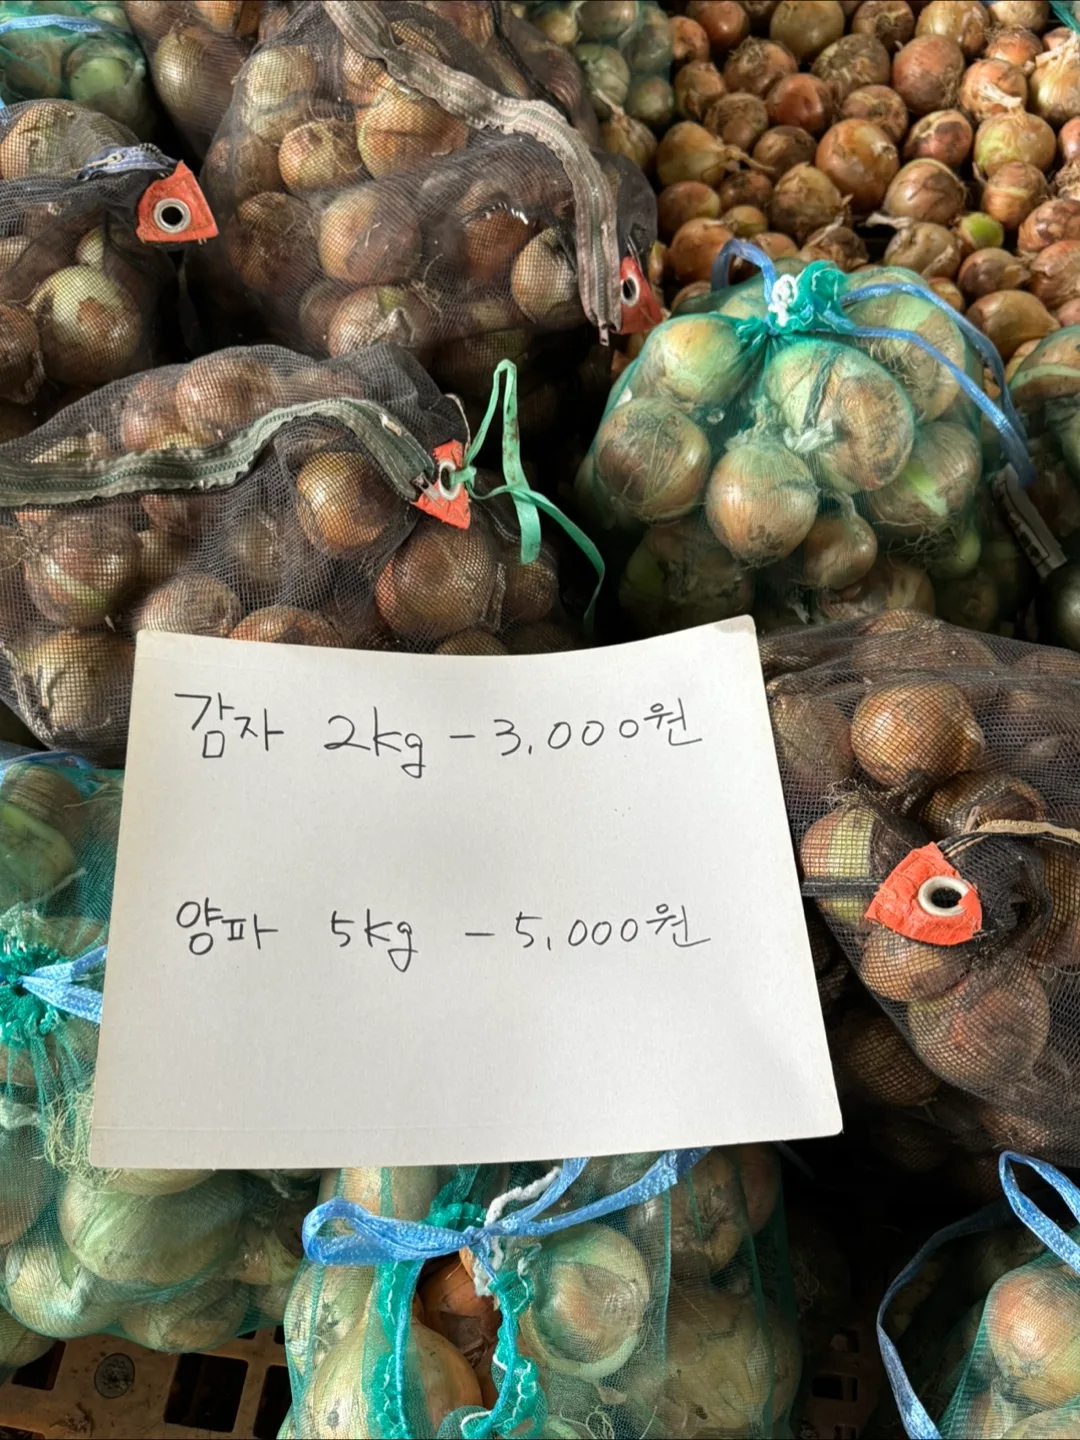 감자 2kg - 3,000원
양파 5kg - 5,000원